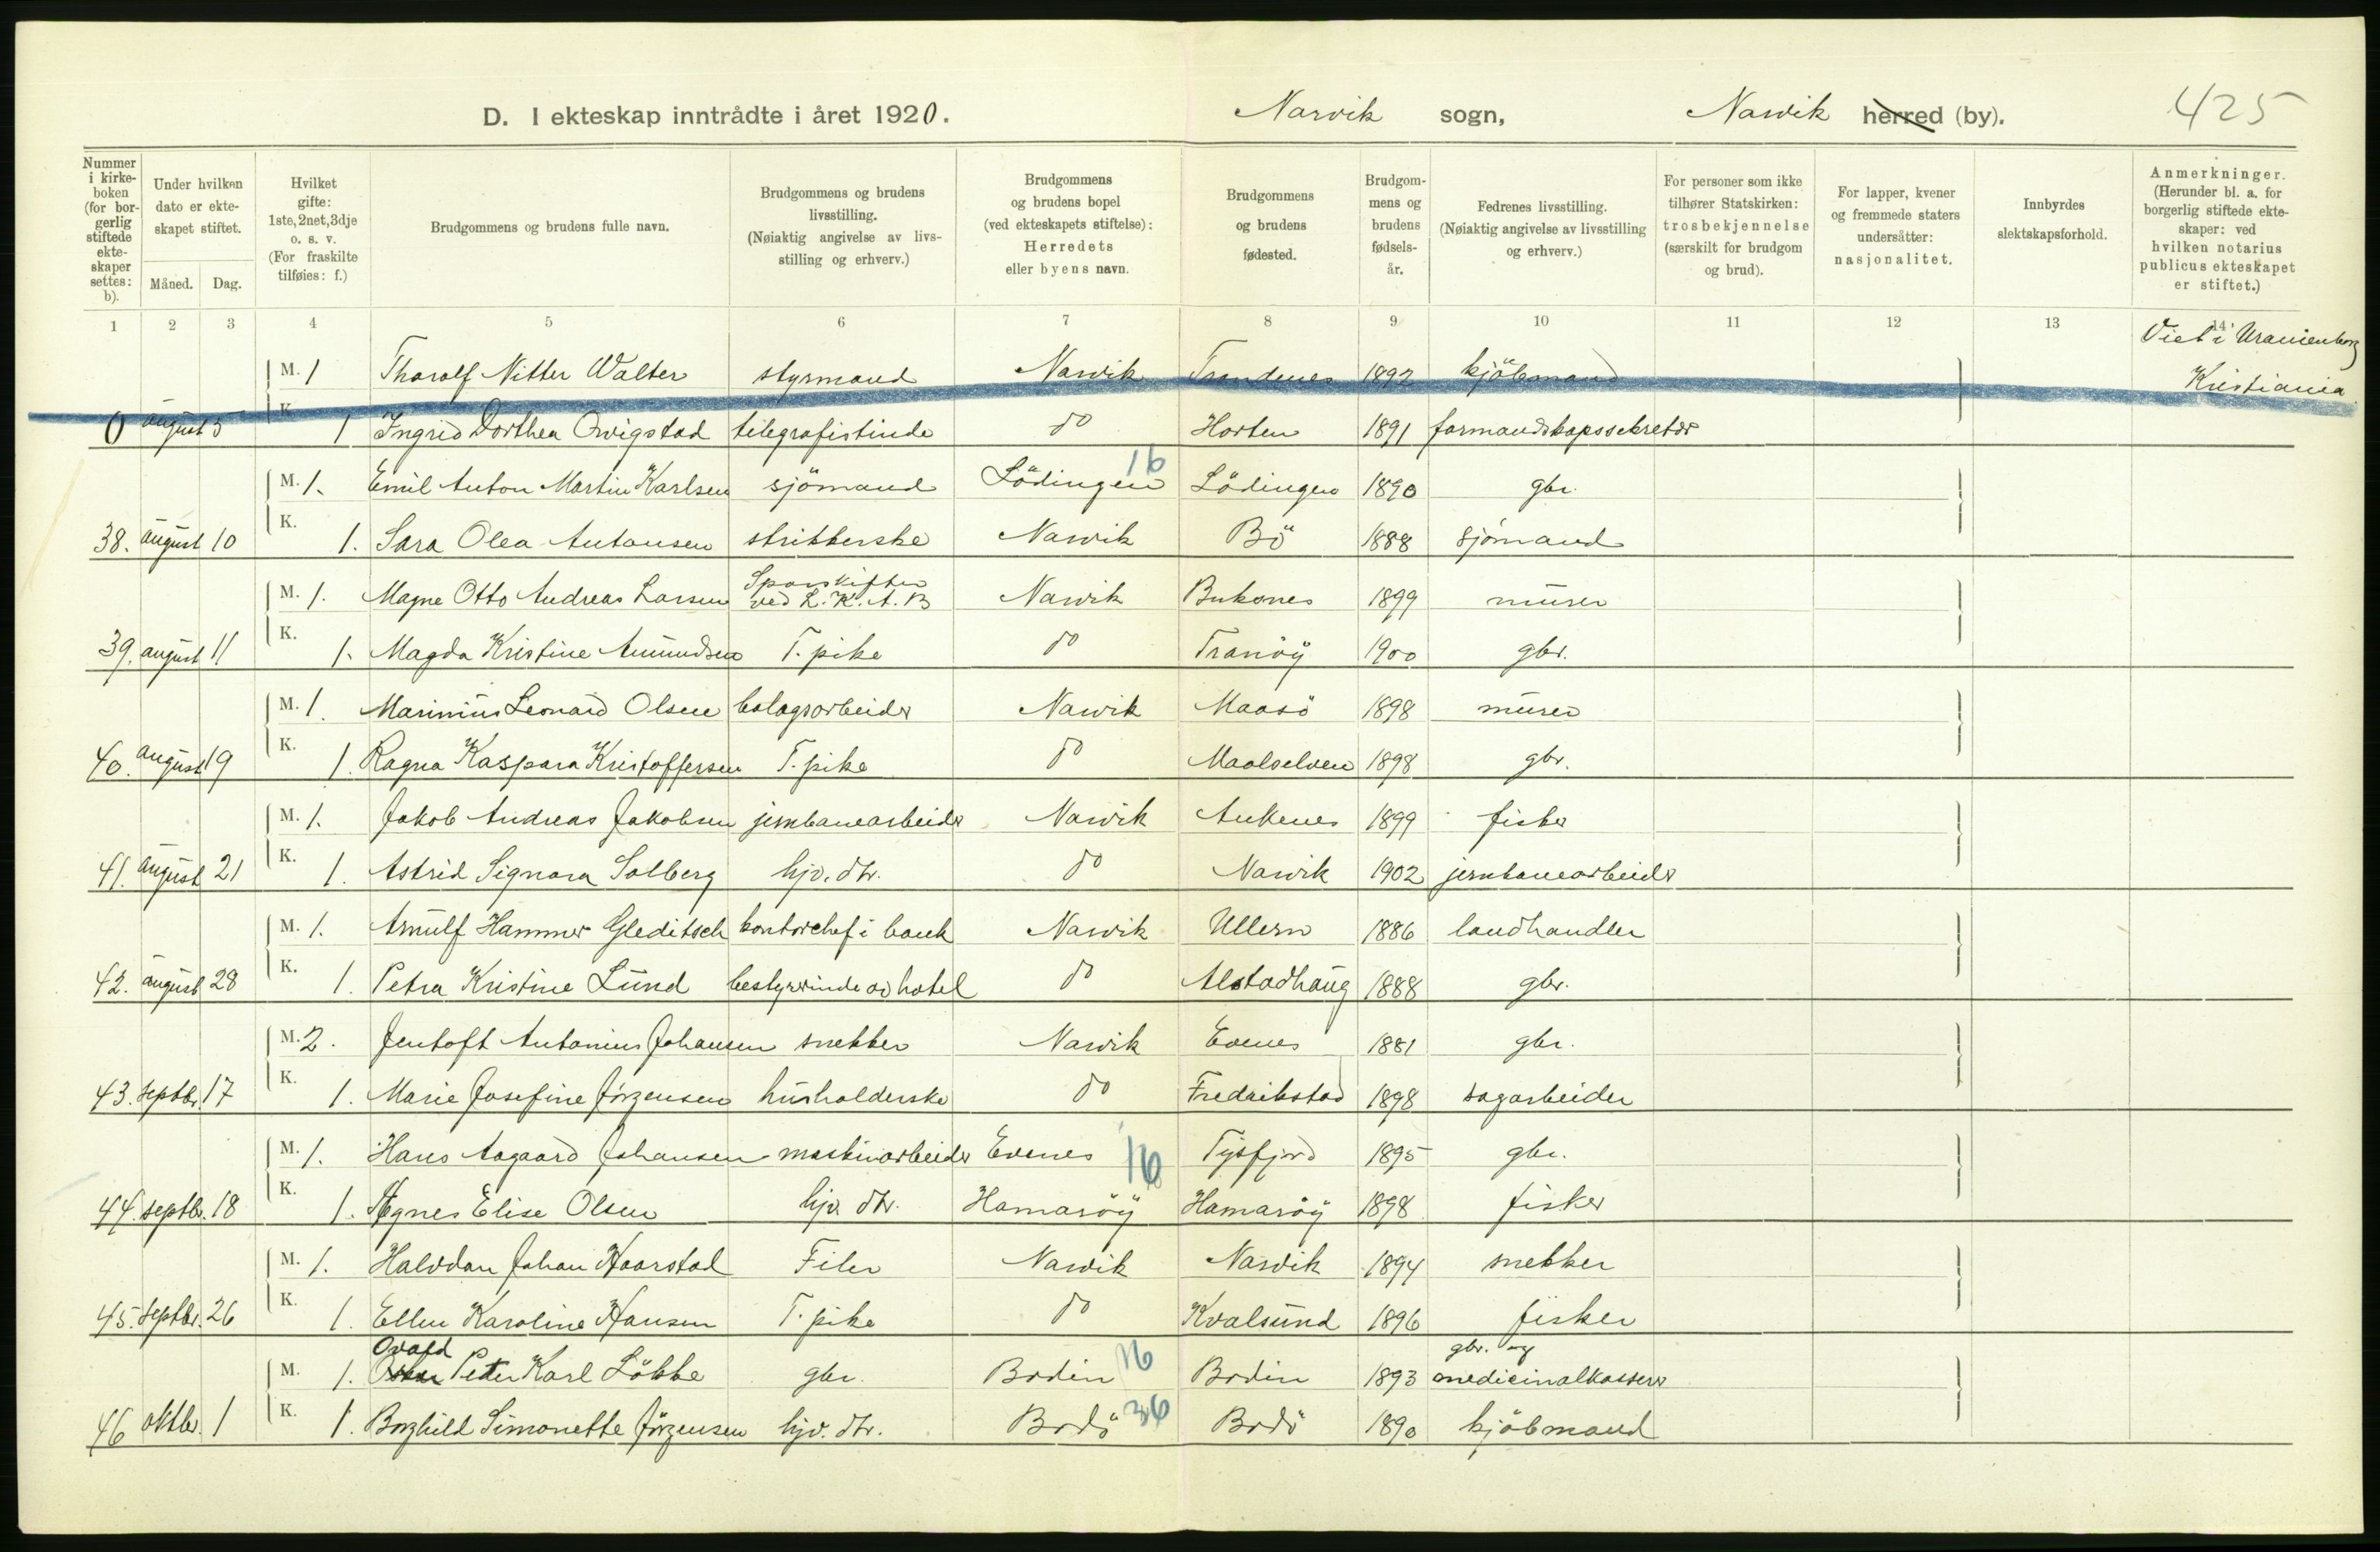 D. I ekteskap inntrådte i året 1920. Narvik sogn, Narvik herred (by). 425
Nummer i kirke-boken (for bor-gerlig stiftede ekte-skaper settes: b). Under hvilken dato er ekte-skapet stiftet. Måned. Dag. Hvilket gifte: 1ste, 2net, 3dje o. s. v. (For fraskilte tilføies: f.) Brudgommens og brudens fulle navn. Brudgommens og brudens livsstilling. (Nøiaktig angivelse av livs-stilling og erhverv.) Brudgommens og brudens bopel (ved ekteskapets stiftelse): Herredets eller byens navn. Brudgommens og brudens fødested. Brudgom-mens og brudens fødsels-år. Fedrenes livsstilling. (Nøiaktig angivelse av livsstilling og erhverv.) For personer som ikke tilhører Statskirken: trosbekjennelse (særskilt for brudgom og brud). For lapper, kvener og fremmede staters undersåtter: nasjonalitet. Innbyrdes slektskapsforhold. Anmerkninger. (Herunder bl. a. for borgerlig stiftede ekte-skaper: ved hvilken notarius publicus ekteskapet er stiftet.)
1 2 3 4 5 6 7 8 9 10 11 12 13 14
M. 1 Tharalf Nitter Walter styrmand Narvik Trondenes 1892 kjöbmand Viet i Uranienborg Kristiania
0 august 5 K. 1 Ingrid Dorthea Qvigstad telegrafistinde do Horten 1891 formandskapssekretær
M. 1. Emil Anton Martin Karlsen sjömand Lödingen 16 Lödingen 1890 gbr.
38. august 10 K. 1. Sara Olea Antonsen strikkerske Narvik Bö 1888 sjömand
M. 1. Magne Otto Andreas Larsen Sporskifter ved L.K.A.B Narvik Buksnes 1899 murer
39. august 11 K. 1. Magda Kristine Amundsen T. pike do Tranöy 1900 gbr.
M. 1. Marinius Leonard Olsen bolagsarbeider Narvik Maasö 1898 murer
40. august 19 K. 1. Ragna Kaspara Kristoffersen T. pike do Maalselven 1898 gbr.
M. 1. Jakob Andreas Jakobsen jernbanearbeider Narvik Ankenes 1899 fisker
41. august 21 K. 1. Astrid Signora Solberg hjv. dtr. do Narvik 1902 jernbanearbeider
M. 1. Arnulf Hammer Gleditsch kontorchef i bank Narvik Ullern 1886 landhandler
42. august 28 K. 1. Petra Kristine Lund bestyrerinde av hotel do Alstadhaug 1888 gbr.
M. 2. Jentoft Antonius Johansen snekker Narvik Evenes 1881 gbr.
43. septbr. 17 K. 1. Marie Josefine Jörgensen husholderske do Fredrikstad 1898 sagarbeider
M. 1. Hans Aagaard Johansen maskinarbeider Evenes 16 Tysfjord 1895 gbr.
44. septbr. 18 K. 1. Agnes Elise Olsen hjv. dtr. Hamaröy Hamaröy 1898 fisker
M. 1. Halvdan Johan Haarstad Filer Narvik Narvik 1894 snekker
45. septbr. 26 K. 1. Ellen Karoline Hansen T. pike do Kvalsund 1896 fisker
M. 1. Ovald Peter Karl Lökke gbr. Bodin 16 Bodin 1893 gbr. og medicinalkasserer
46 oktbr. 1 K. 1. Borghild Simonette Jörgensen hjv. dtr. Bodö 36 Bodö 1890 kjöbmand